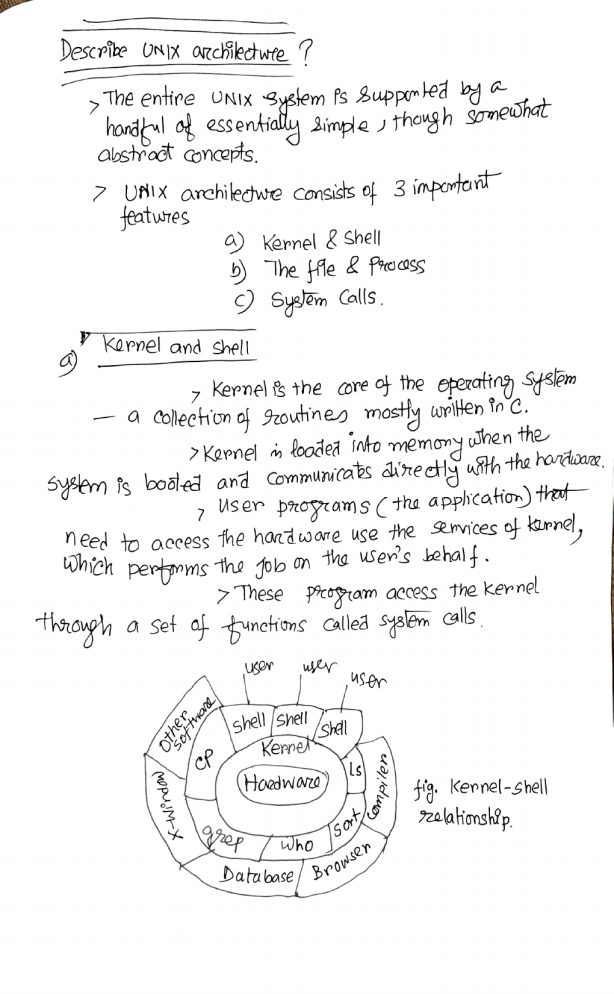 Describe UNIX architecture ?
> The entire UNIX system is supported by a
handful of essentially simple, though somewhat
abstract concepts.
> UNIX architecture consists of 3 important
features
a) Kernel & Shell
b) The file & Process
c) System Calls.
a) Kernel and shell
> Kernel is the core of the operating system
— a collection of routines mostly written in C.
> Kernel is loaded into memory when the
system is booted and communicates directly with the hardware.
> User programs (the application) that
need to access the hardware use the services of kernel,
which performs the job on the user's behalf.
> These program access the kernel
through a set of functions called system calls.
user user user
Other
software
CP
Shell Shell Shell
Kernel
Hardware
ls
Compiler
X-Window
grep
who
sort
Database
Browser
fig. Kernel-shell
relationship.